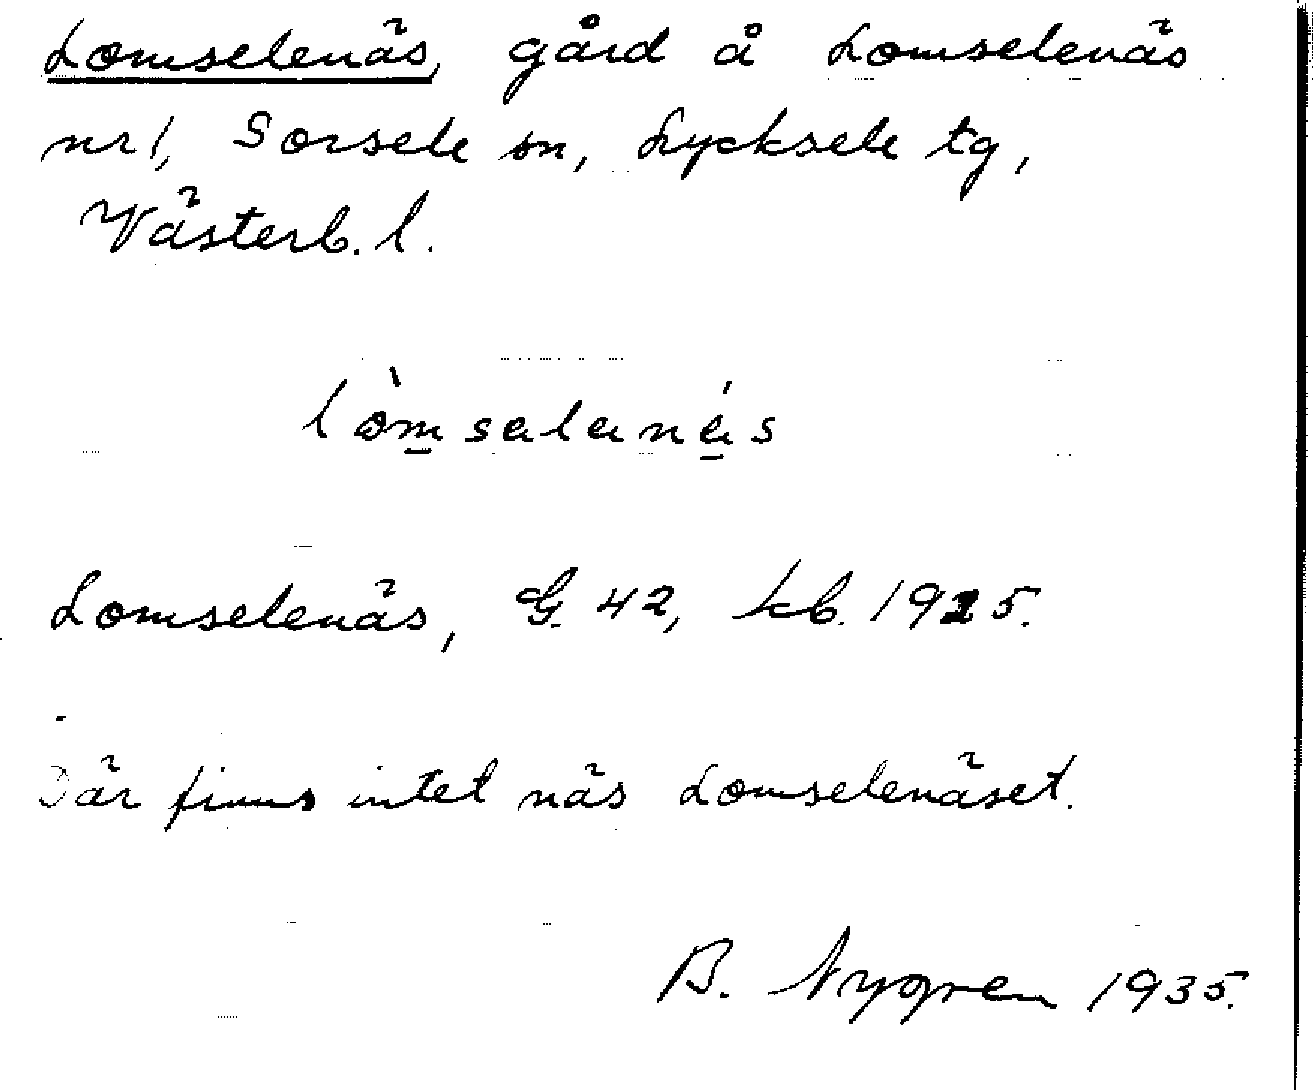 Lomselenäs, gård å Lomselenäs
nr 1, Sorsele sn, Lycksele tg,
Västerb. l.
lòmselenǽs
Lomselenäs, G. 42, kb. 1925.
Där finns intet näs Lomselenäset.
B. Nygren 1935.